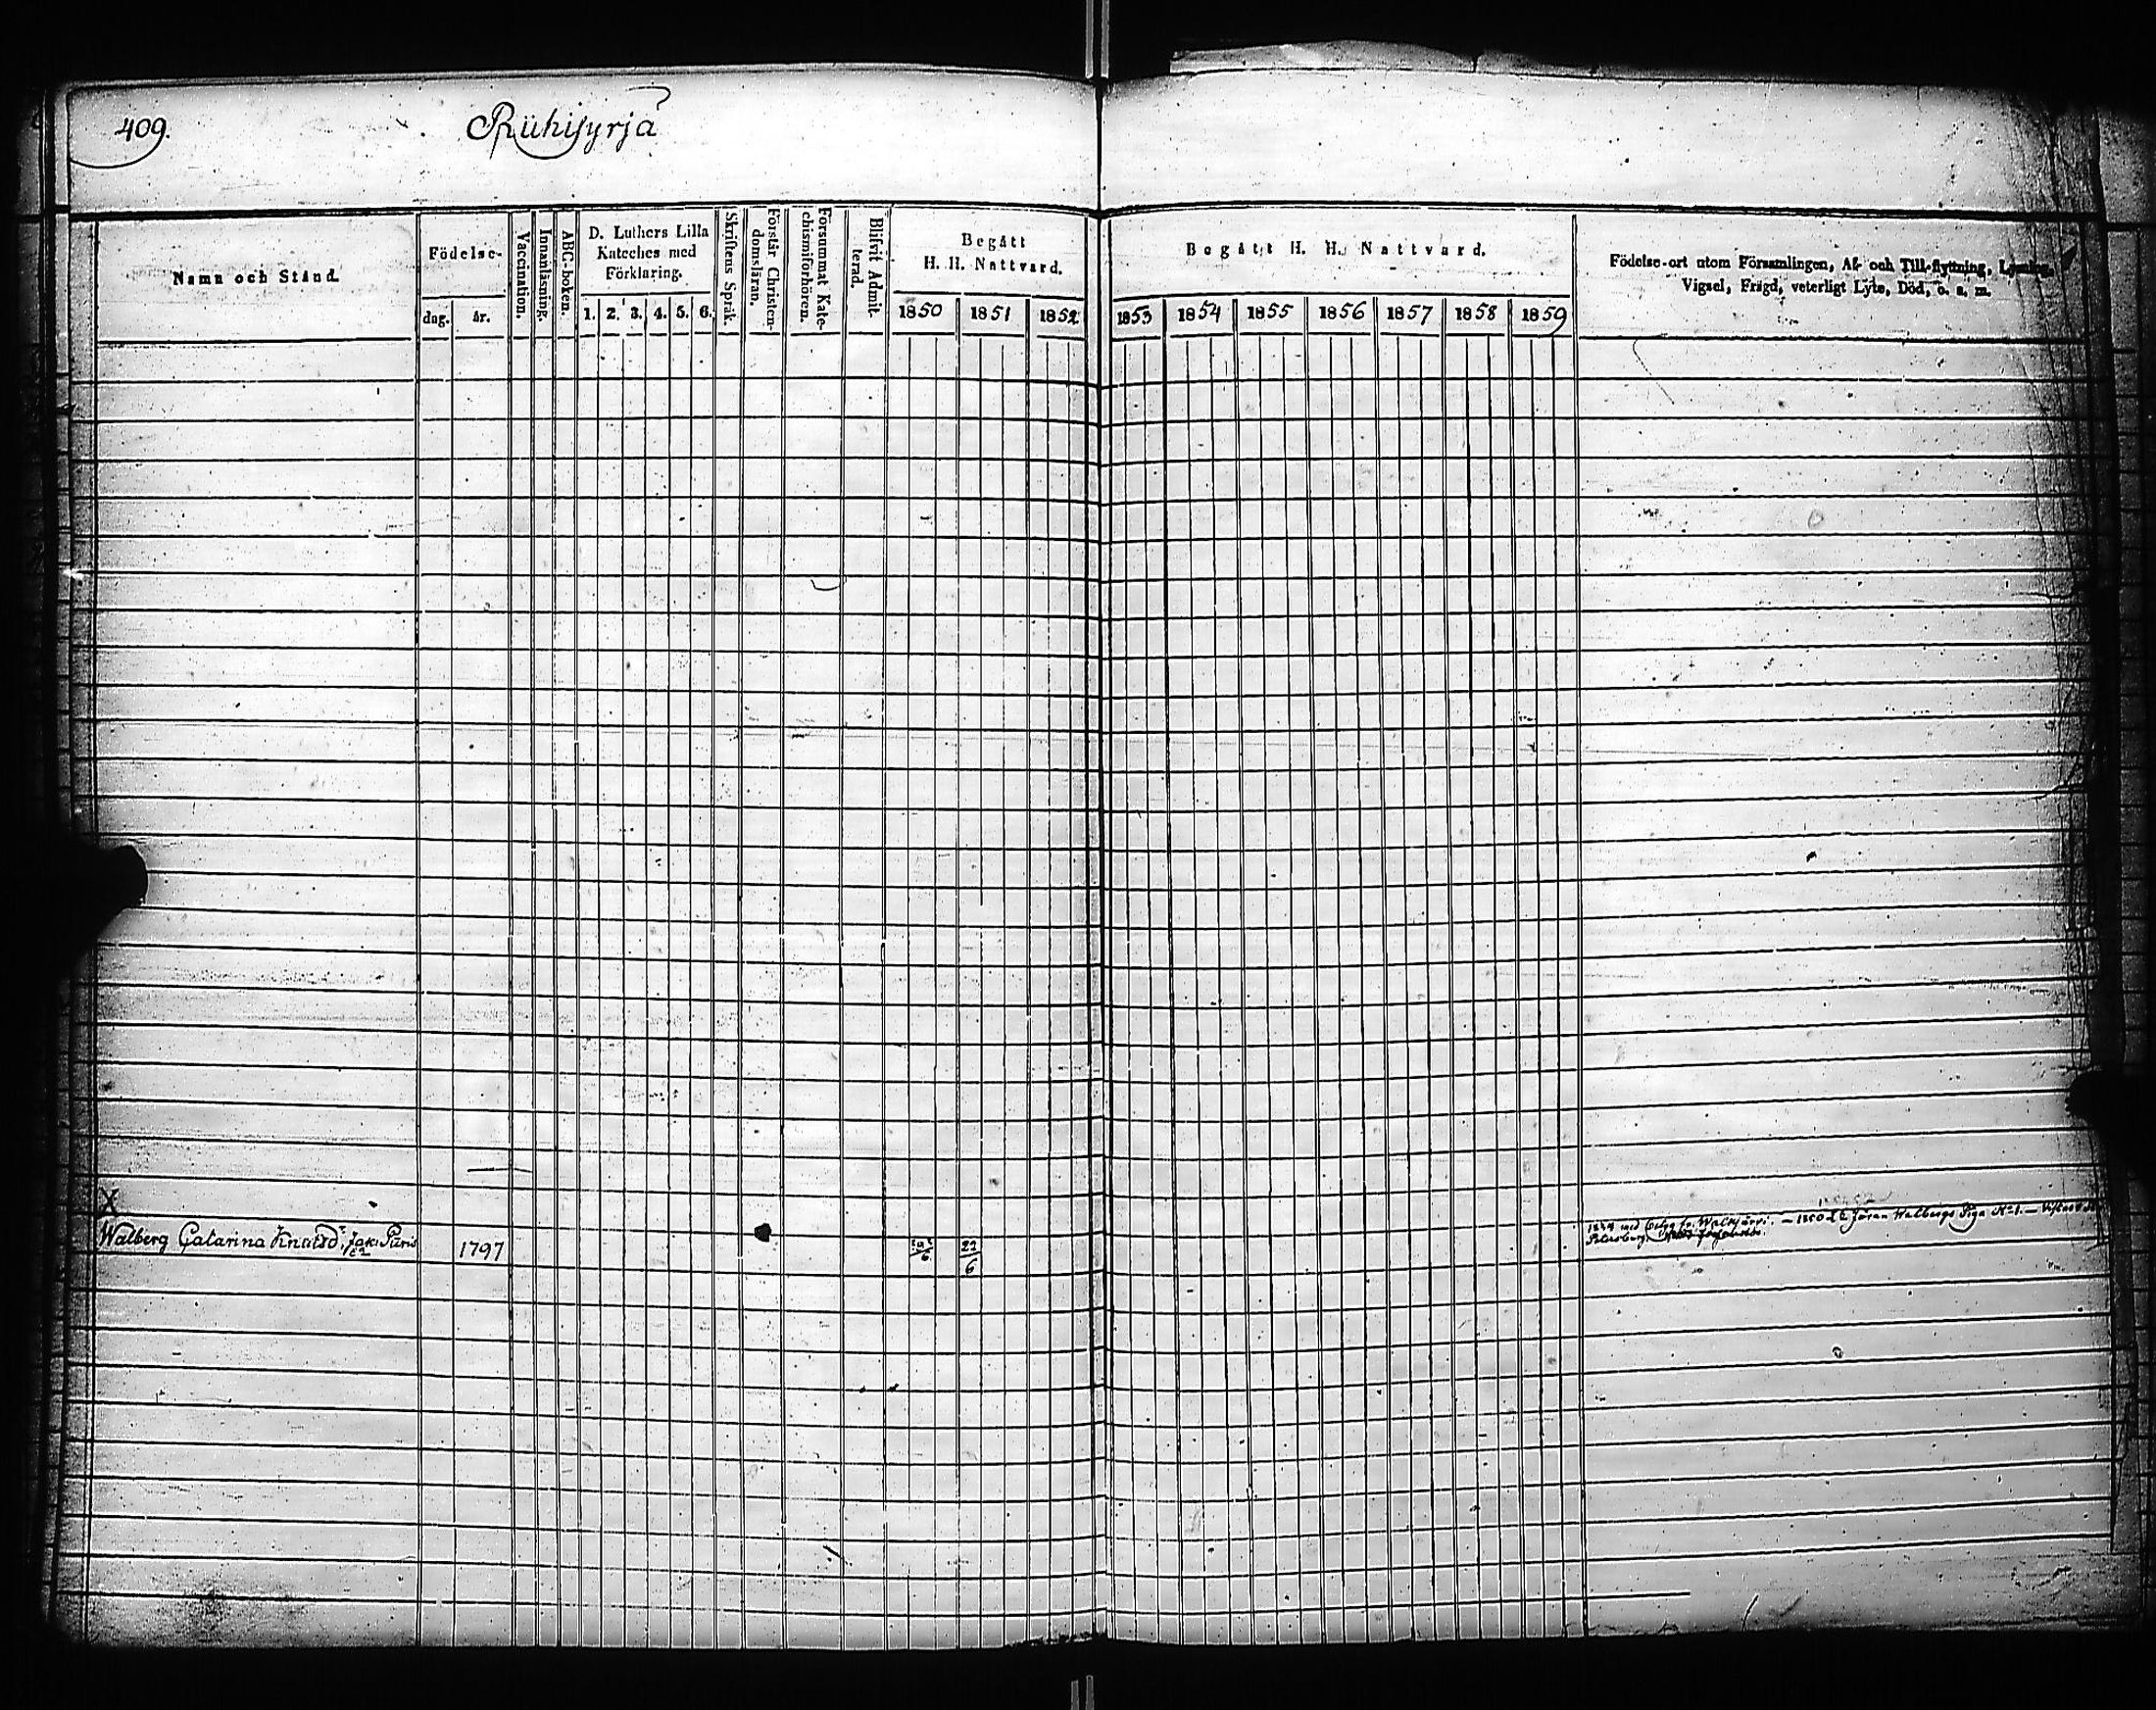 409.
Riihisyrjä
Namn och Stånd.
Födelse-
dag. år.
Vaccination.
Innanläsning.
ABC-boken.
D. Luthers Lilla
Kateches med
Förklaring.
1. 2. 3. 4. 5. 6.
Skriftens Språk.
Förstår Christen-
domsläran.
Försummat Kate-
chismiförhören.
Blifvit Admit-
terad.
Begått
H. H. Nattvard.
1850 1851 1852
Begått H. H. Nattvard.
1853 1854 1855 1856 1857 1858 1859
Födelse-ort utom Församlingen, Af- och Till-flyttning, Lysning,
Vigsel, Frägd, veterligt Lyte, Död, o. s. m.
X
Walberg Catarina 1797 22/6
Walkjärvi. – 1850 Göran Walbergs Piga No 1. –
Petersburg.